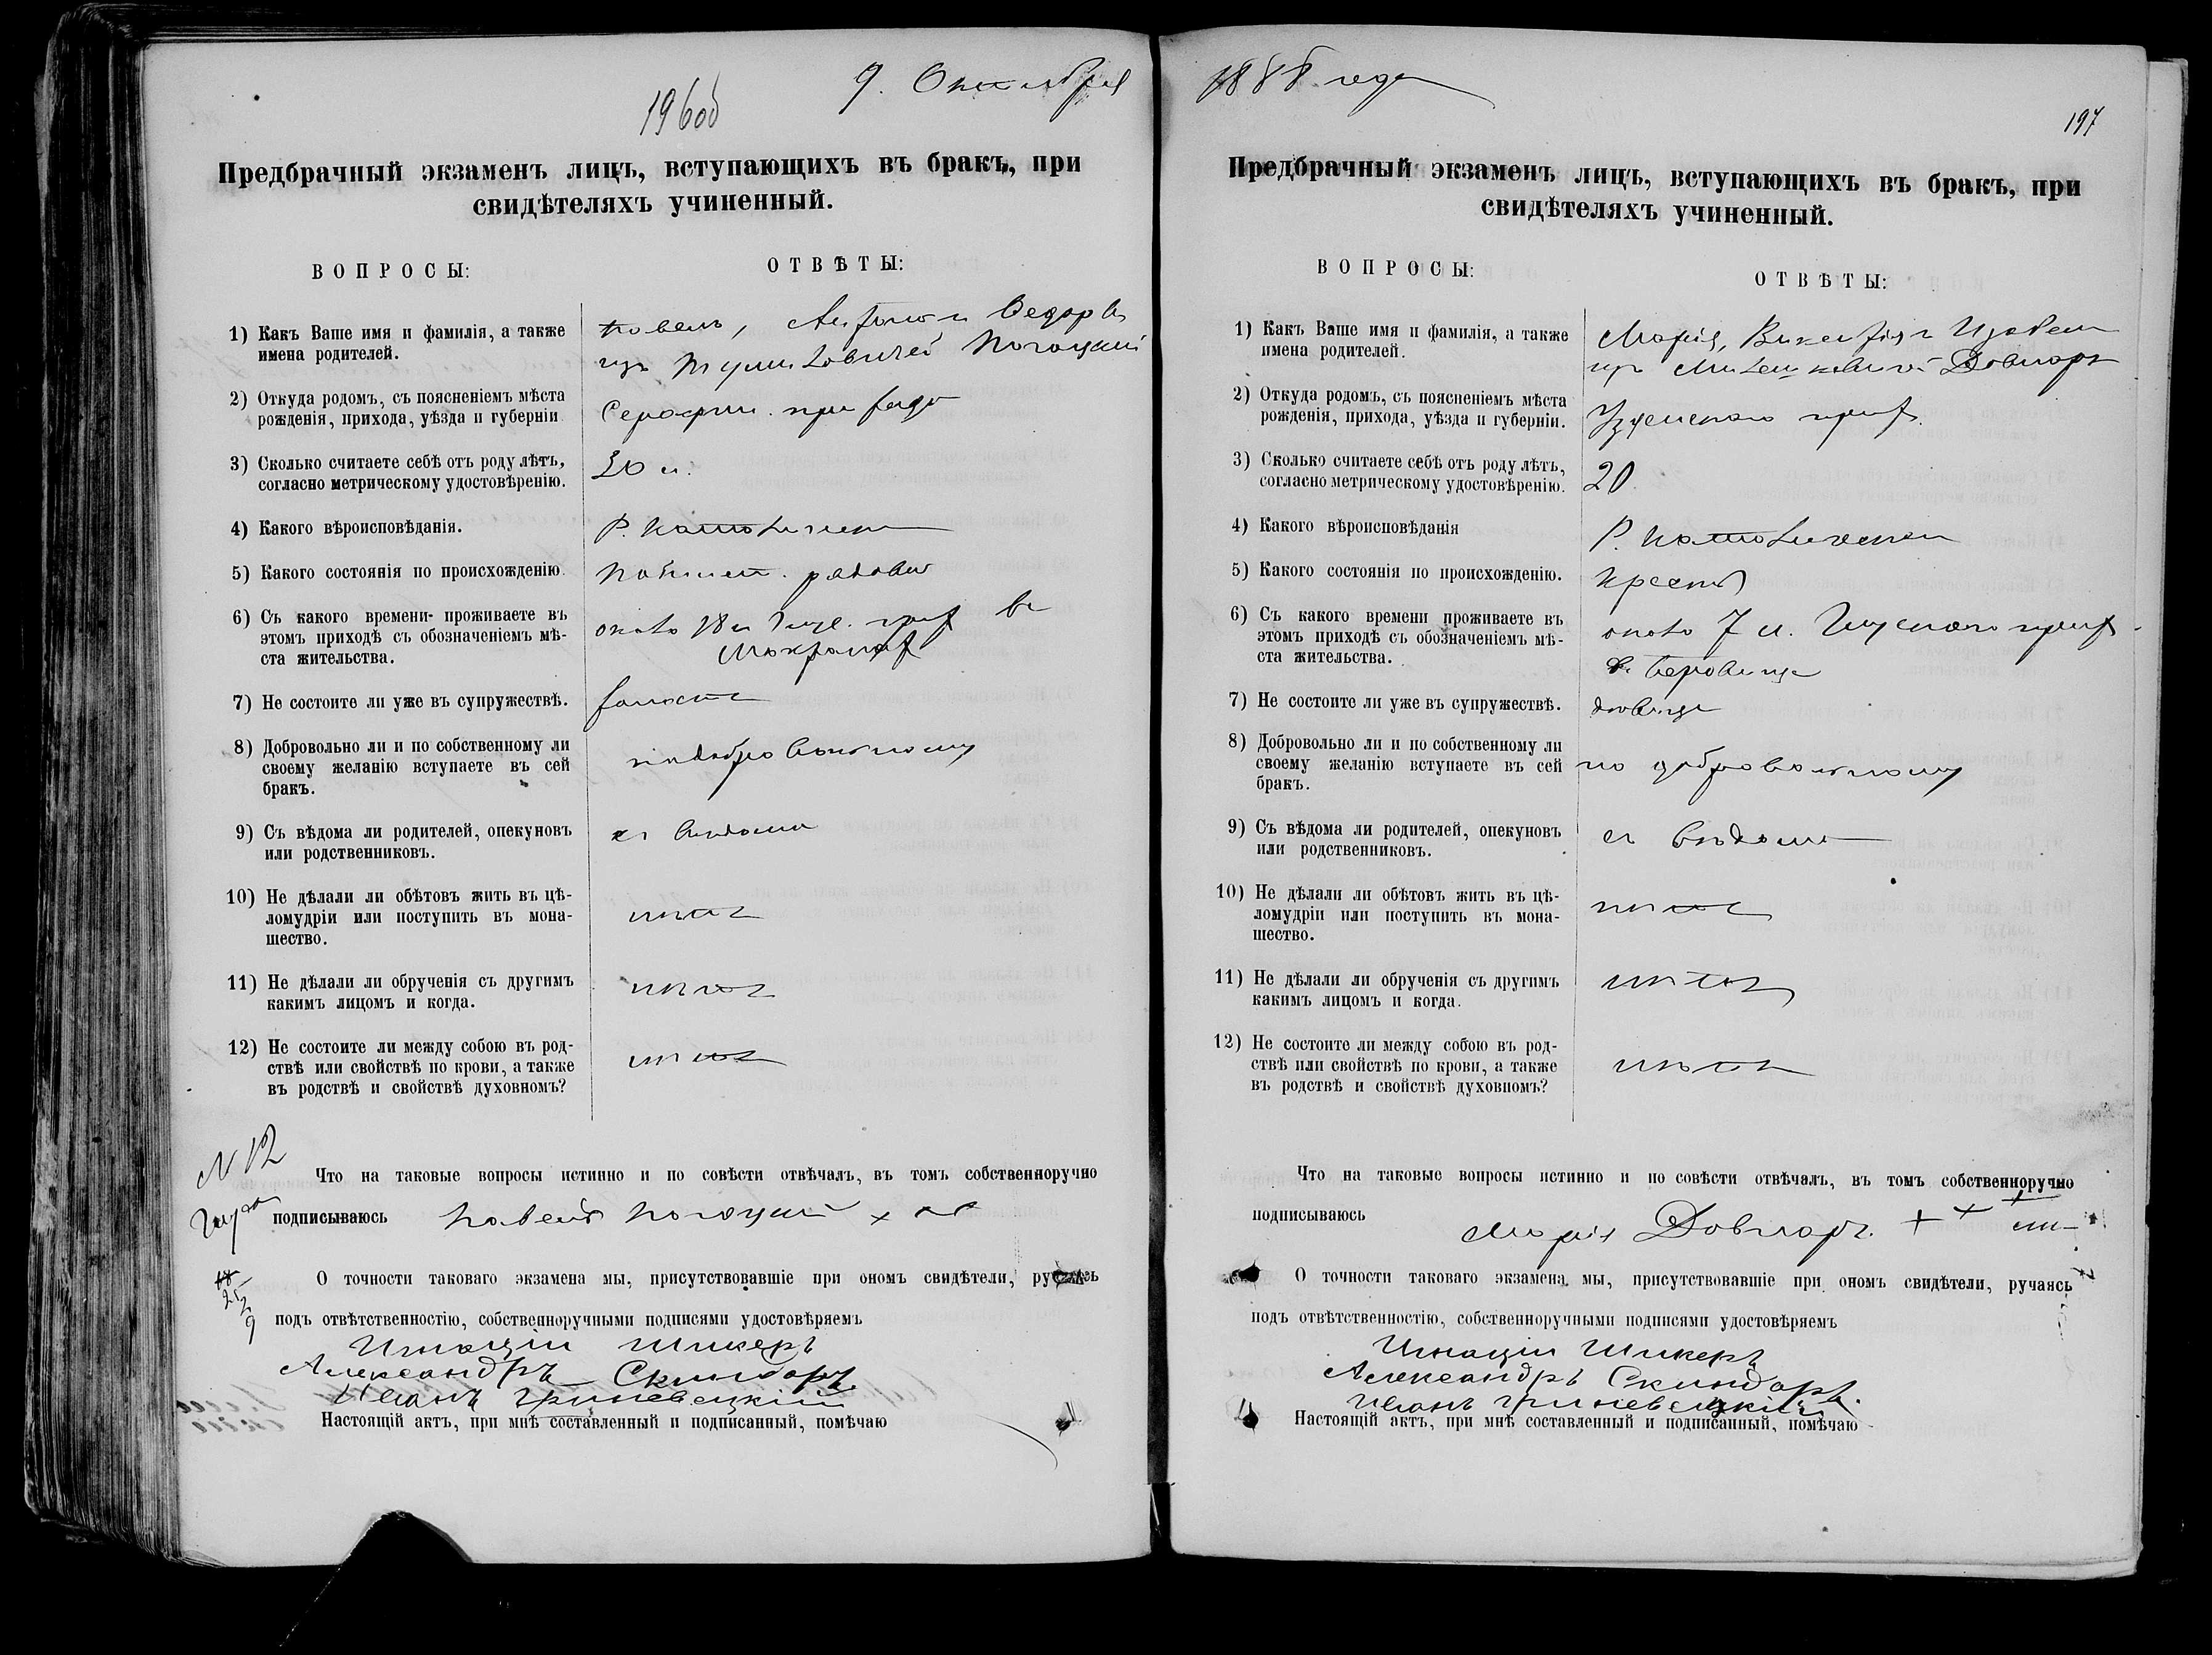 9. Октября
196об
Предбрачный экзаменъ лицъ, вступающихъ въ бракъ, при
свидѣтеляхъ учиненный.
ВОПРОСЫ:
ОТВѢТЫ:
1) Какъ Ваше имя и фамилія, а также
имена родителей.
Павелъ,
2) Откуда родомъ, съ поясненіемъ мѣста
рожденія, прихода, уѣзда и губерніи
3) Сколько считаете себѣ отъ роду лѣтъ,
согласно метрическому удостовѣренію.
30 л.
4) Какого вѣроисповѣданія.
Р. Католическ
5) Какого состоянія по происхожденію.
6) Съ какого времени проживаете въ
этомъ приходѣ съ обозначеніемъ мѣ-
ста жительства.
около 18 л
7) Не состоите ли уже въ супружествѣ.
холостъ
8) Добровольно ли и по собственному ли
своему желанію вступаете въ сей
бракъ.
по добровольному
9) Съ вѣдома ли родителей, опекуновъ
или родственниковъ.
съ вѣдома
10) Не дѣлали ли обѣтовъ жить въ цѣ-
ломудріи или поступить въ мона-
шество.
нѣтъ
11) Не дѣлали ли обрученія съ другимъ
какимъ лицомъ и когда.
нѣтъ
12) Не состоите ли между собою въ род-
ствѣ или свойствѣ по крови, а также
въ родствѣ и свойствѣ духовномъ?
нѣтъ
N 12
Что на таковые вопросы истинно и по совѣсти отвѣчалъ, въ томъ собственноручно
подписываюсь Павелъ
О точности таковаго экзамена мы, присутствовавшіе при ономъ свидѣтели, ручаясь
подъ отвѣтственностію, собственноручными подписями удостовѣряемъ
Игнацій Шикеръ
Александръ Скиндаръ
Иванъ Гриневецкій
Настоящій актъ, при мнѣ составленный и подписанный, помѣчаю
1888 года
197
Предбрачный экзаменъ лицъ, вступающихъ въ бракъ, при
свидѣтеляхъ учиненный.
ВОПРОСЫ:
ОТВѢТЫ:
1) Какъ Ваше имя и фамилія, а также
имена родителей.
Марія, Викентія и
Довнаръ
2) Откуда родомъ, съ поясненіемъ мѣста
рожденія, прихода, уѣзда и губерніи.
Узденскаго прих.
3) Сколько считаете себѣ отъ роду лѣтъ,
согласно метрическому удостовѣренію.
20
4) Какого вѣроисповѣданія
Р. Католическ
5) Какого состоянія по происхожденію.
крест
6) Съ какого времени проживаете въ
этомъ приходѣ съ обозначеніемъ мѣ-
ста жительства.
около 7 л.
7) Не состоите ли уже въ супружествѣ.
дѣвица
8) Добровольно ли и по собственному ли
своему желанію вступаете въ сей
бракъ.
по добровольному
9) Съ вѣдома ли родителей, опекуновъ
или родственниковъ.
съ вѣдома
10) Не дѣлали ли обѣтовъ жить въ цѣ-
ломудріи или поступить въ мона-
шество.
нѣтъ
11) Не дѣлали ли обрученія съ другимъ
какимъ лицомъ и когда.
нѣтъ
12) Не состоите ли между собою въ род-
ствѣ или свойствѣ по крови, а также
въ родствѣ и свойствѣ духовномъ?
нѣтъ
Что на таковые вопросы истинно и по совѣсти отвѣчалъ, въ томъ собственноручно
подписываюсь Марія Довнаръ + + +
О точности таковаго экзамена мы, присутствовавшіе при ономъ свидѣтели, ручаясь
подъ отвѣтственностію, собственноручными подписями удостовѣряемъ
Игнацій Шикеръ
Александръ Скиндаръ.
Иванъ Гриневецкій
Настоящій актъ, при мнѣ составленный и подписанный, помѣчаю